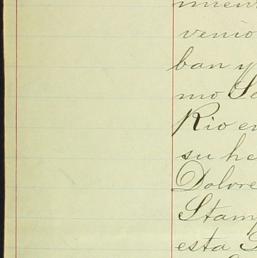 mien
venio
ban y
mo
Rio en
su he
Dolore
Stam
esta